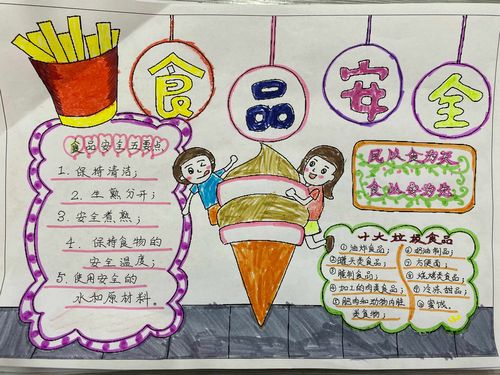 食品安全
食品安全五要点
1. 保持清洁；
2. 生熟分开；
3. 安全煮熟；
4. 保持食物的
安全温度；
5. 使用安全的
水和原材料。
民以食为天
食以安为先
十大垃圾食品
①油炸食品；
②罐头类食品；
③腌制食品；
④加工的肉类食品；
⑤肥肉和动物内脏
类食物；
⑥奶油制品；
⑦方便面；
⑧烧烤类食品；
⑨冷冻甜品；
⑩蜜饯。